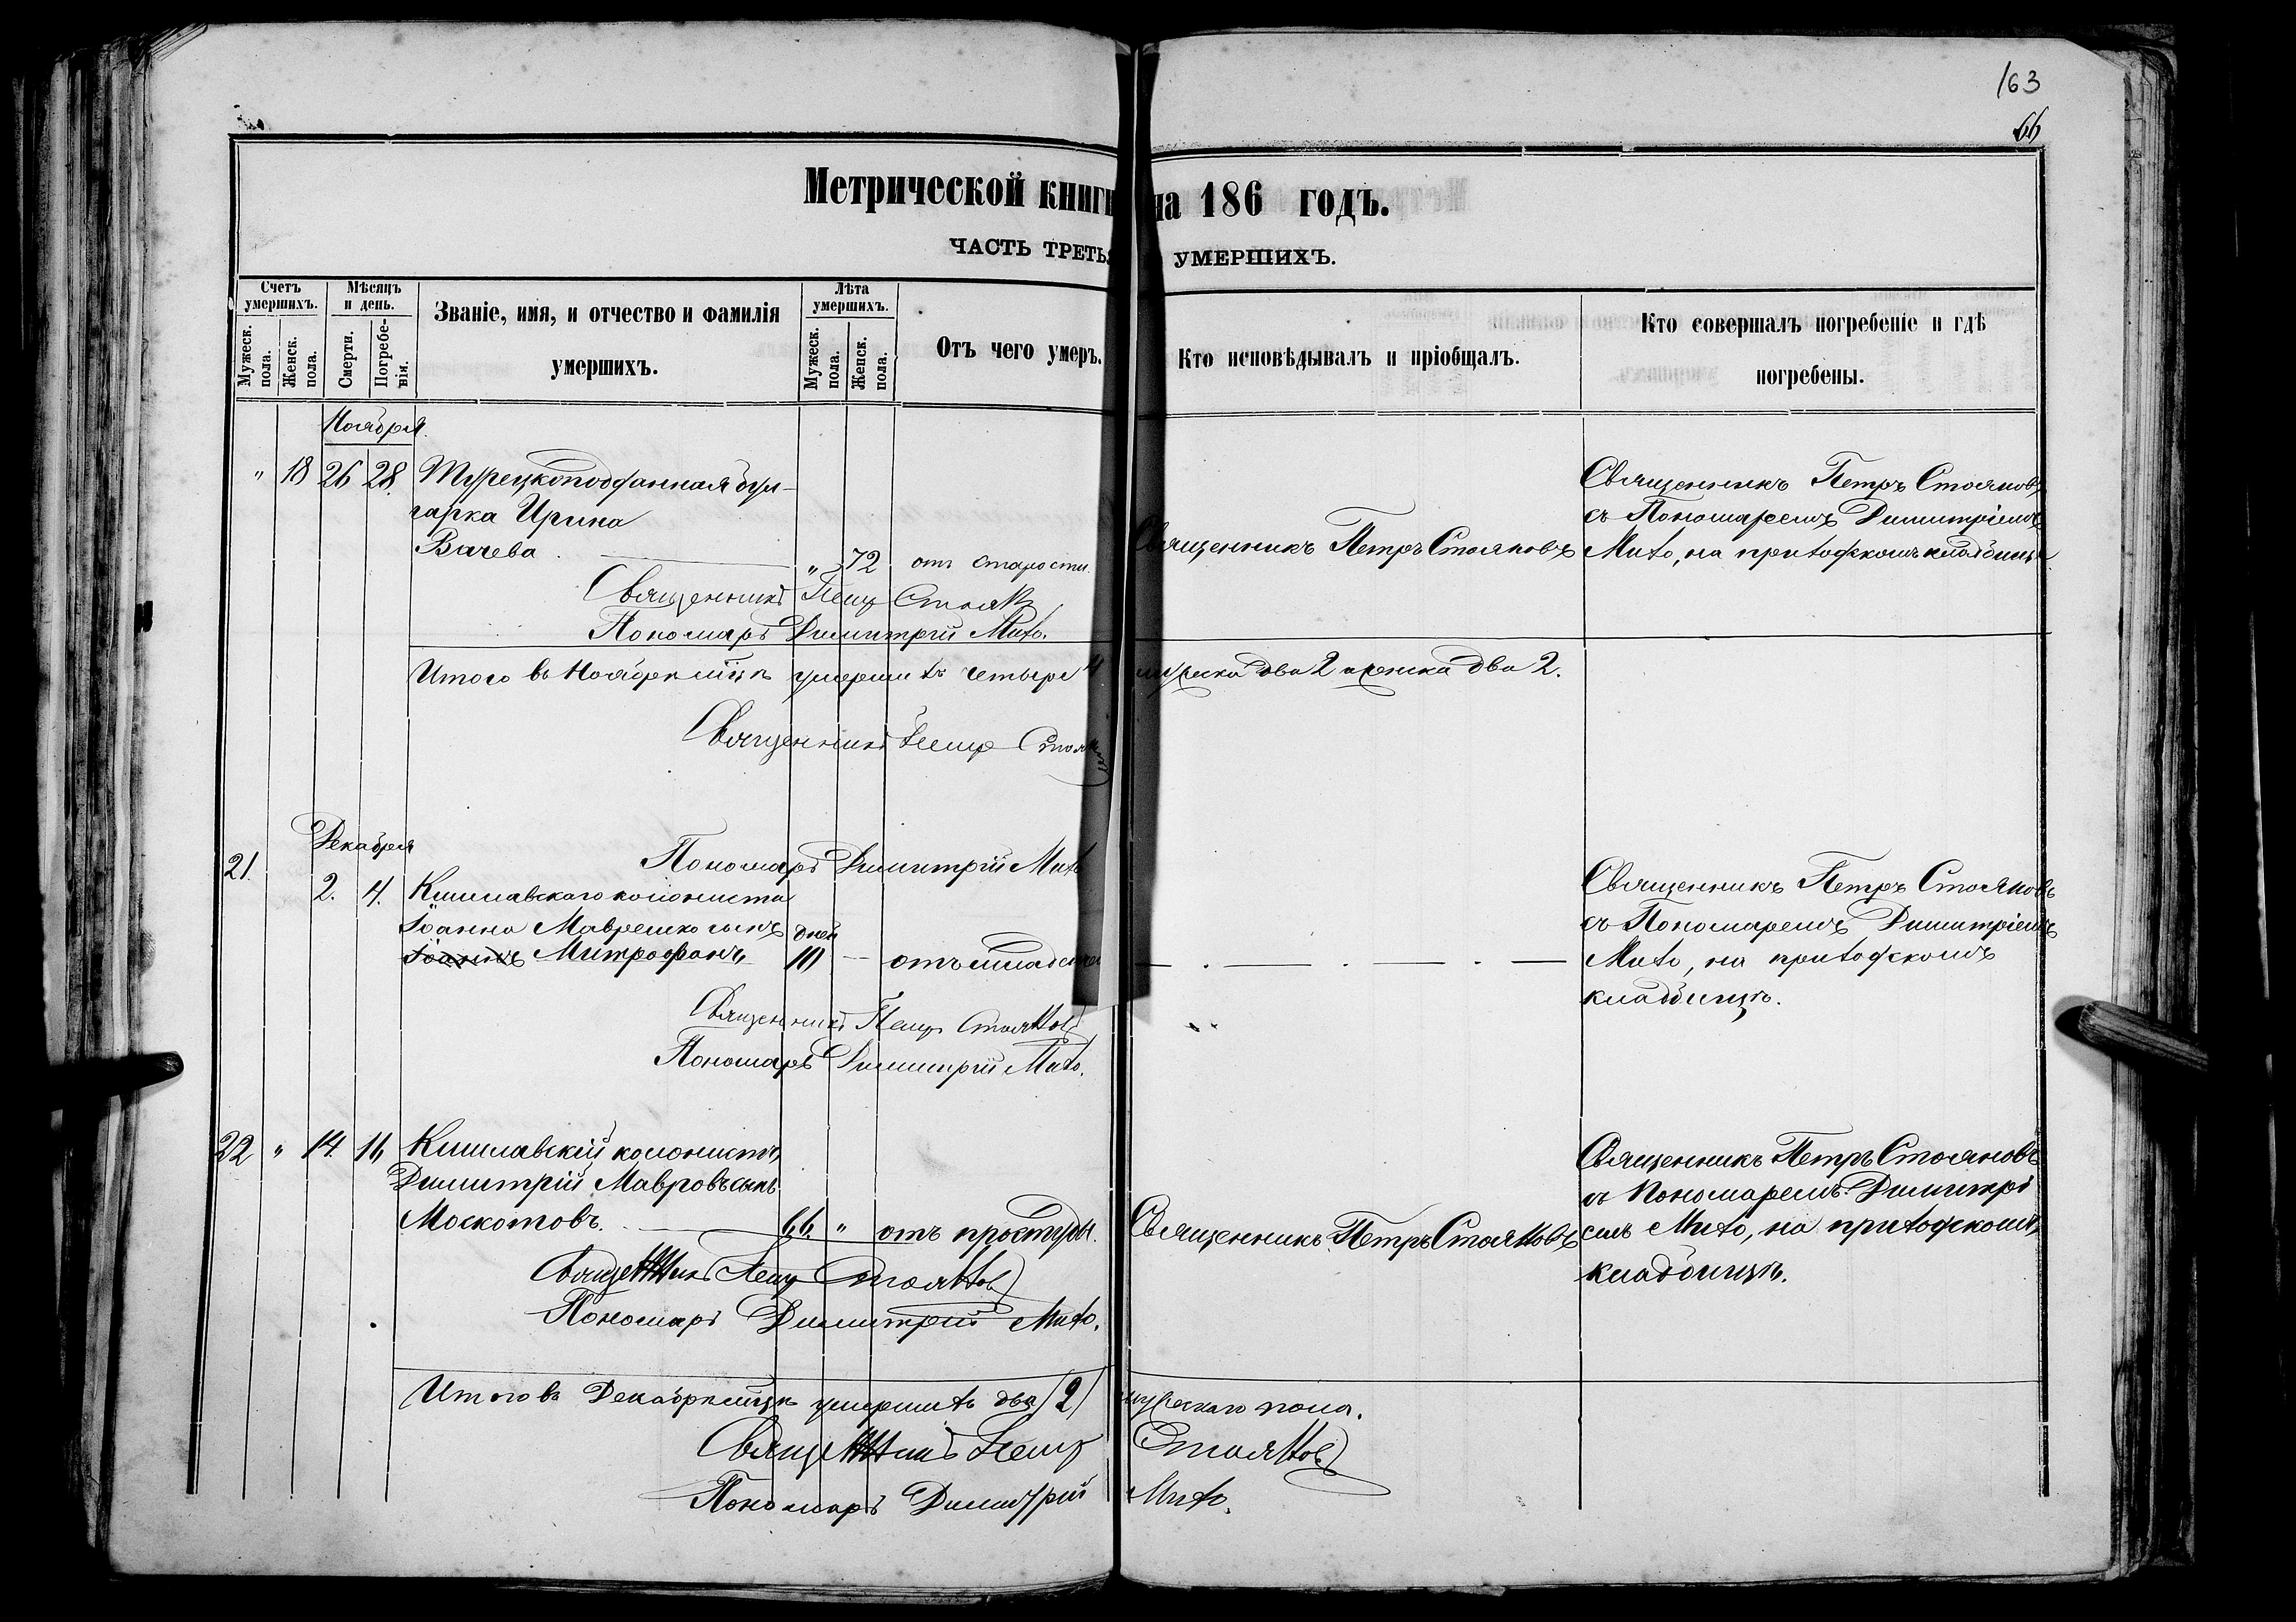 163
66
Метрической книги на 186 годъ.
ЧАСТЬ ТРЕТЬЯ УМЕРШИХЪ.
Счетъ умершихъ.
Мужеск. пола.
Женск. пола.
Мѣсяцъ и день.
Смерти.
Погребенія.
Званіе, имя, и отчество и фамилія
умершихъ.
Лѣта умершихъ.
Мужеск. пола.
Женск. пола.
Отъ чего умеръ.
Кто исповѣдывалъ и пріобщалъ.
Кто совершалъ погребеніе и гдѣ
погребены.
Ноября.
" 18 26 28. Турецкоподданная бул-
гарка Ирина
Вачева " 72 отъ старости.
Священникъ Петръ Стояновъ
Священникъ Петръ Стояновъ
съ Пономаремъ Димитріемъ
Мито, на приходскомъ кладбищѣ.
Священникъ Петръ Стоян
Пономарь Димитрій Мито.
Итого въ Ноябрѣ мѣцѣ умершихъ четыре 4 мужеска два 2 и женска два 2.
Священникъ Петръ Стоян
Декабря
Пономарь Димитрій Мито
21. 2. 4. Кишлавскаго колониста
Іоанна Маврешко сынъ дней
Іоаннъ Митрофанъ 10 — отъ младенч
Священникъ Петръ Стояновъ
съ Пономаремъ Димитріемъ
Мито, на приходскомъ
кладбищѣ.
Священникъ Петръ Стоянов
Пономарь Димитрій Мито.
22 " 14. 16 Кишлавскій колонистъ
Димитрій Мавровъ сынъ
Москотовъ. 66. " отъ простуды.
Священникъ Петръ Стояновъ
Священникъ Петръ Стояновъ
съ Пономаремъ Димитрі
емъ Мито, на приходскомъ
кладбищѣ.
Священникъ Петръ Стоянов
Пономарь Димитрій Мито.
Итого въ Декабрѣ мѣцѣ умершихъ два /2/ мужескаго пола.
Священникъ Петръ Стоянов
Пономарь Димитрій Мито.